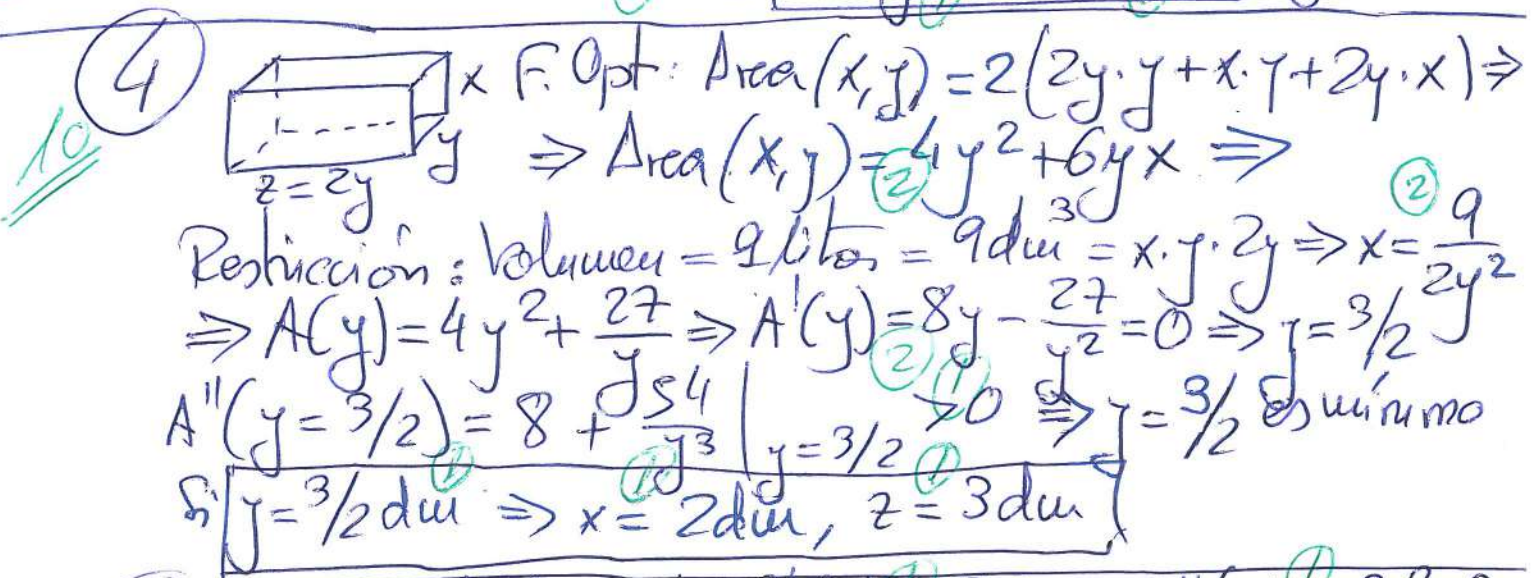 4 x F. Opt: Area(x,y) = 2(2y·y + x·y + 2y·x) ⇒
10 y ⇒ Area(x,y) = 4y² + 6yx ⇒
z = 2y 2 2
Restricción: Volumen = 9 litros = 9 dm³ = x·y·2y ⇒ x = 9/2y²
⇒ A(y) = 4y² + 27/y ⇒ A'(y) = 8y - 27/y² = 0 ⇒ y = 3/2
2 1
A''(y = 3/2) = 8 + 54/y³ | y = 3/2 > 0 ⇒ y = 3/2 es mínimo
1 1 1
Si y = 3/2 dm ⇒ x = 2 dm, z = 3 dm